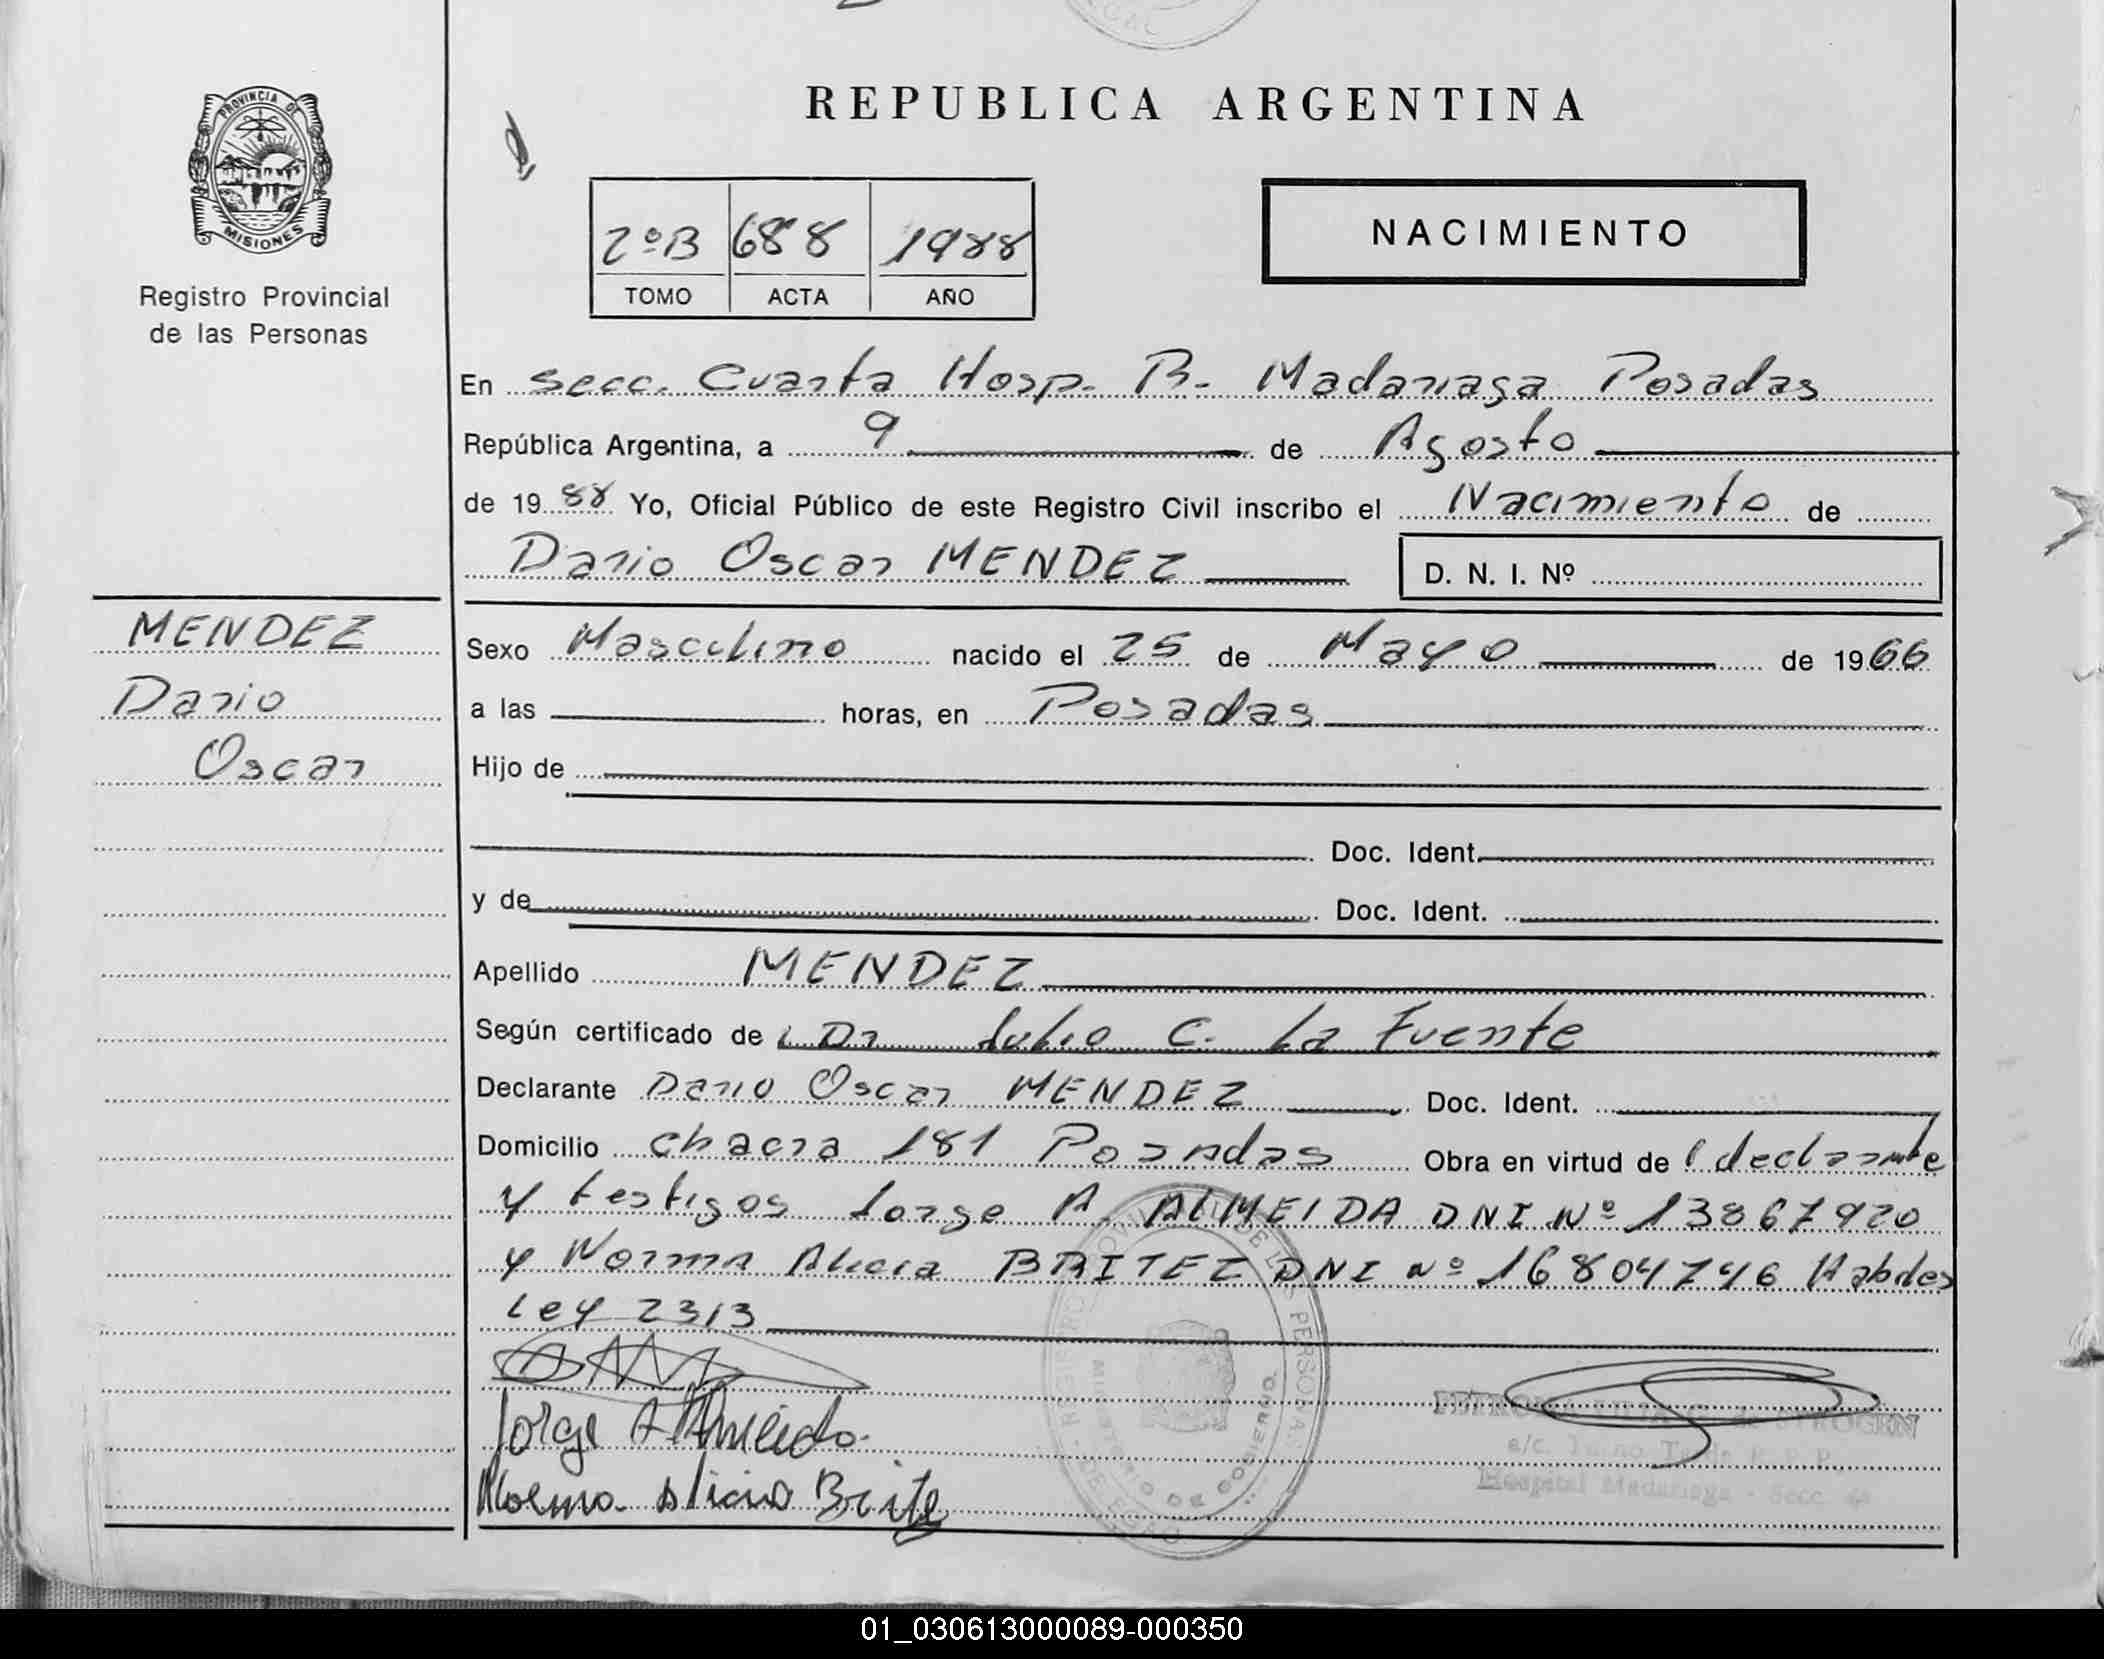 PROVINCIA DE
MISIONES
Registro Provincial
de las Personas
REPUBLICA ARGENTINA
2ºB 688 1988
TOMO ACTA AÑO
NACIMIENTO
En Secc. Cuarta Hosp. R. Madariaga Posadas
República Argentina, a 9 de Agosto
de 1988 Yo, Oficial Público de este Registro Civil inscribo el Nacimiento de
Dario Oscar MENDEZ D. N. I. Nº
MENDEZ
Dario
Oscar
Sexo Masculino nacido el 25 de Mayo de 1966
a las horas, en Posadas
Hijo de
Doc. Ident.
y de Doc. Ident.
Apellido MENDEZ
Según certificado de Dr Julio C. La Fuente
Declarante Dario Oscar MENDEZ Doc. Ident.
Domicilio chacra 181 Posadas Obra en virtud de declarante
y testigos Jorge A. ALMEIDA DNI Nº 13867920
y Norma Alicia BRITEZ DNI nº 16804746 Habdes
Ley 2313
Jorge A. Almeida
Norma Alicia Brite
REGISTRO PROVINCIAL DE LAS PERSONAS
MINISTERIO DE GOBIERNO
Hospital Madariaga - Secc. 4ª
01_030613000089-000350